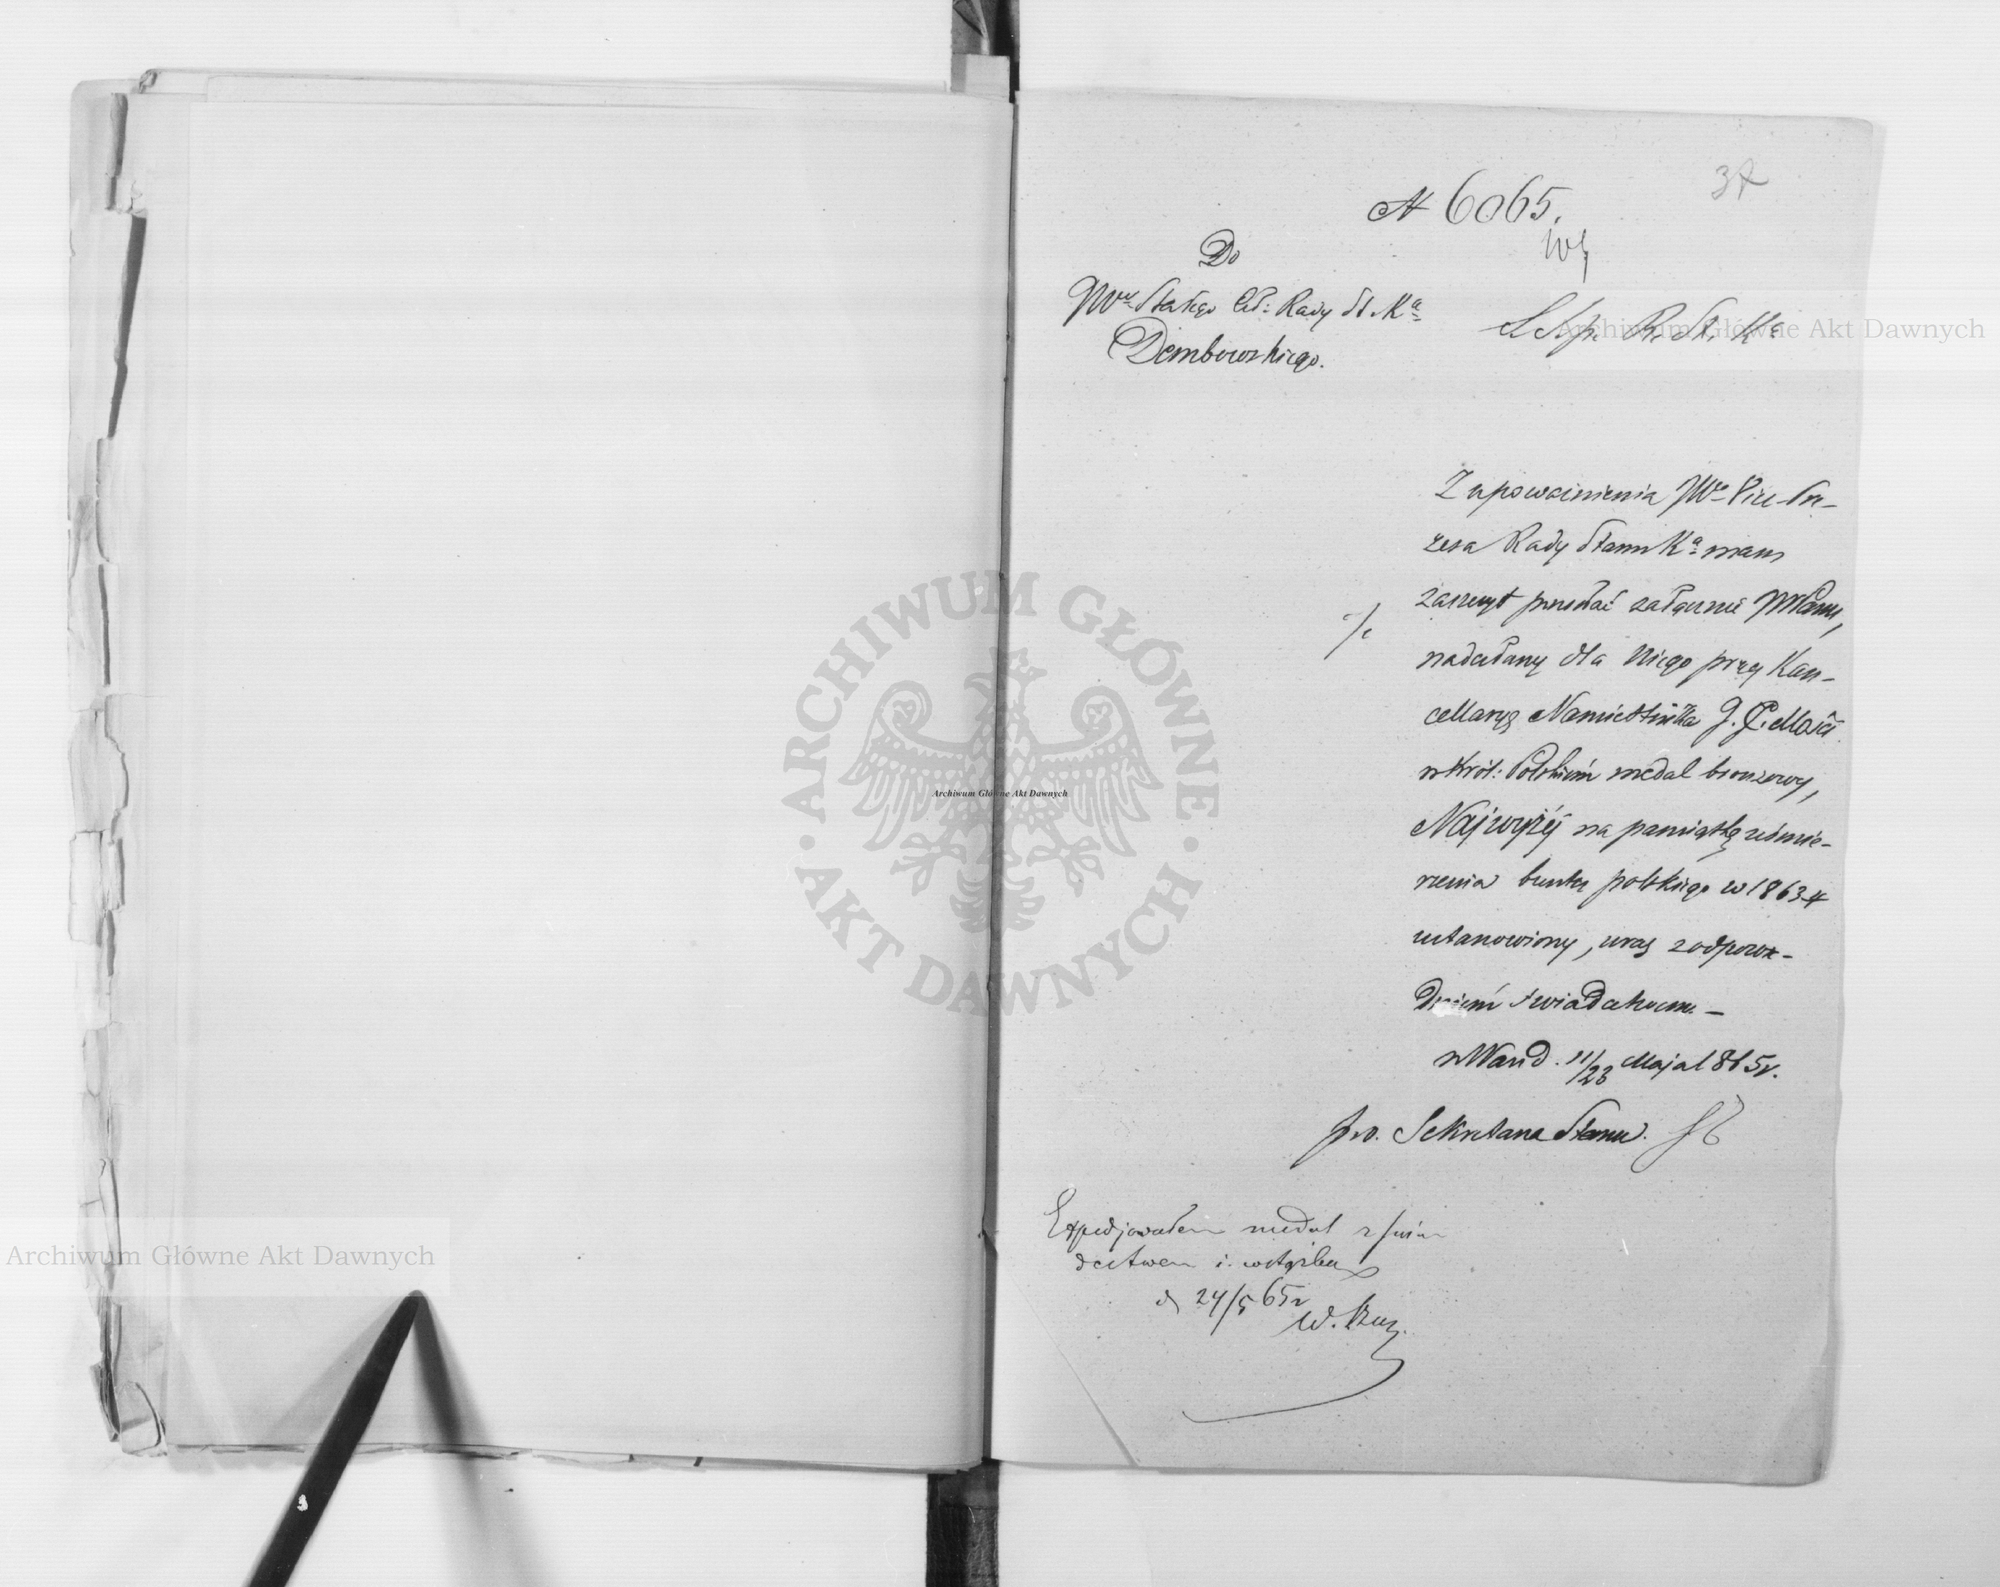 37
N 6065.
Do
JWo Stałego Czł: Rady St. Ka
Dembowskiego.
S Sgo R. St. Ka
Z upoważnienia JWo Vice-Pre-
zesa Rady Stanu Ka mam
zaszczyt przesłać załącznie JWPanu,
nadesłany dla Niego przez Kan-
cellaryę Namiestnika J. C. Mości
w Król: Polskiém medal bronzowy,
Najwyżéj na pamiątkę uśmie-
rzenia buntu polskiego w 1863/4
ustanowiony, wraz z odpowie-
dniém świadectwem. –
w War. d. 11/23 Maja 1865 r.
p.o. Sekretarza Stanu.
Expedjowałem medal z świa-
dectwem i wstążką
d 24/5 65 r
Archiwum Główne Akt Dawnych
Archiwum Główne Akt Dawnych
Archiwum Główne Akt Dawnych
ARCHIWUM GŁÓWNE · AKT DAWNYCH ·